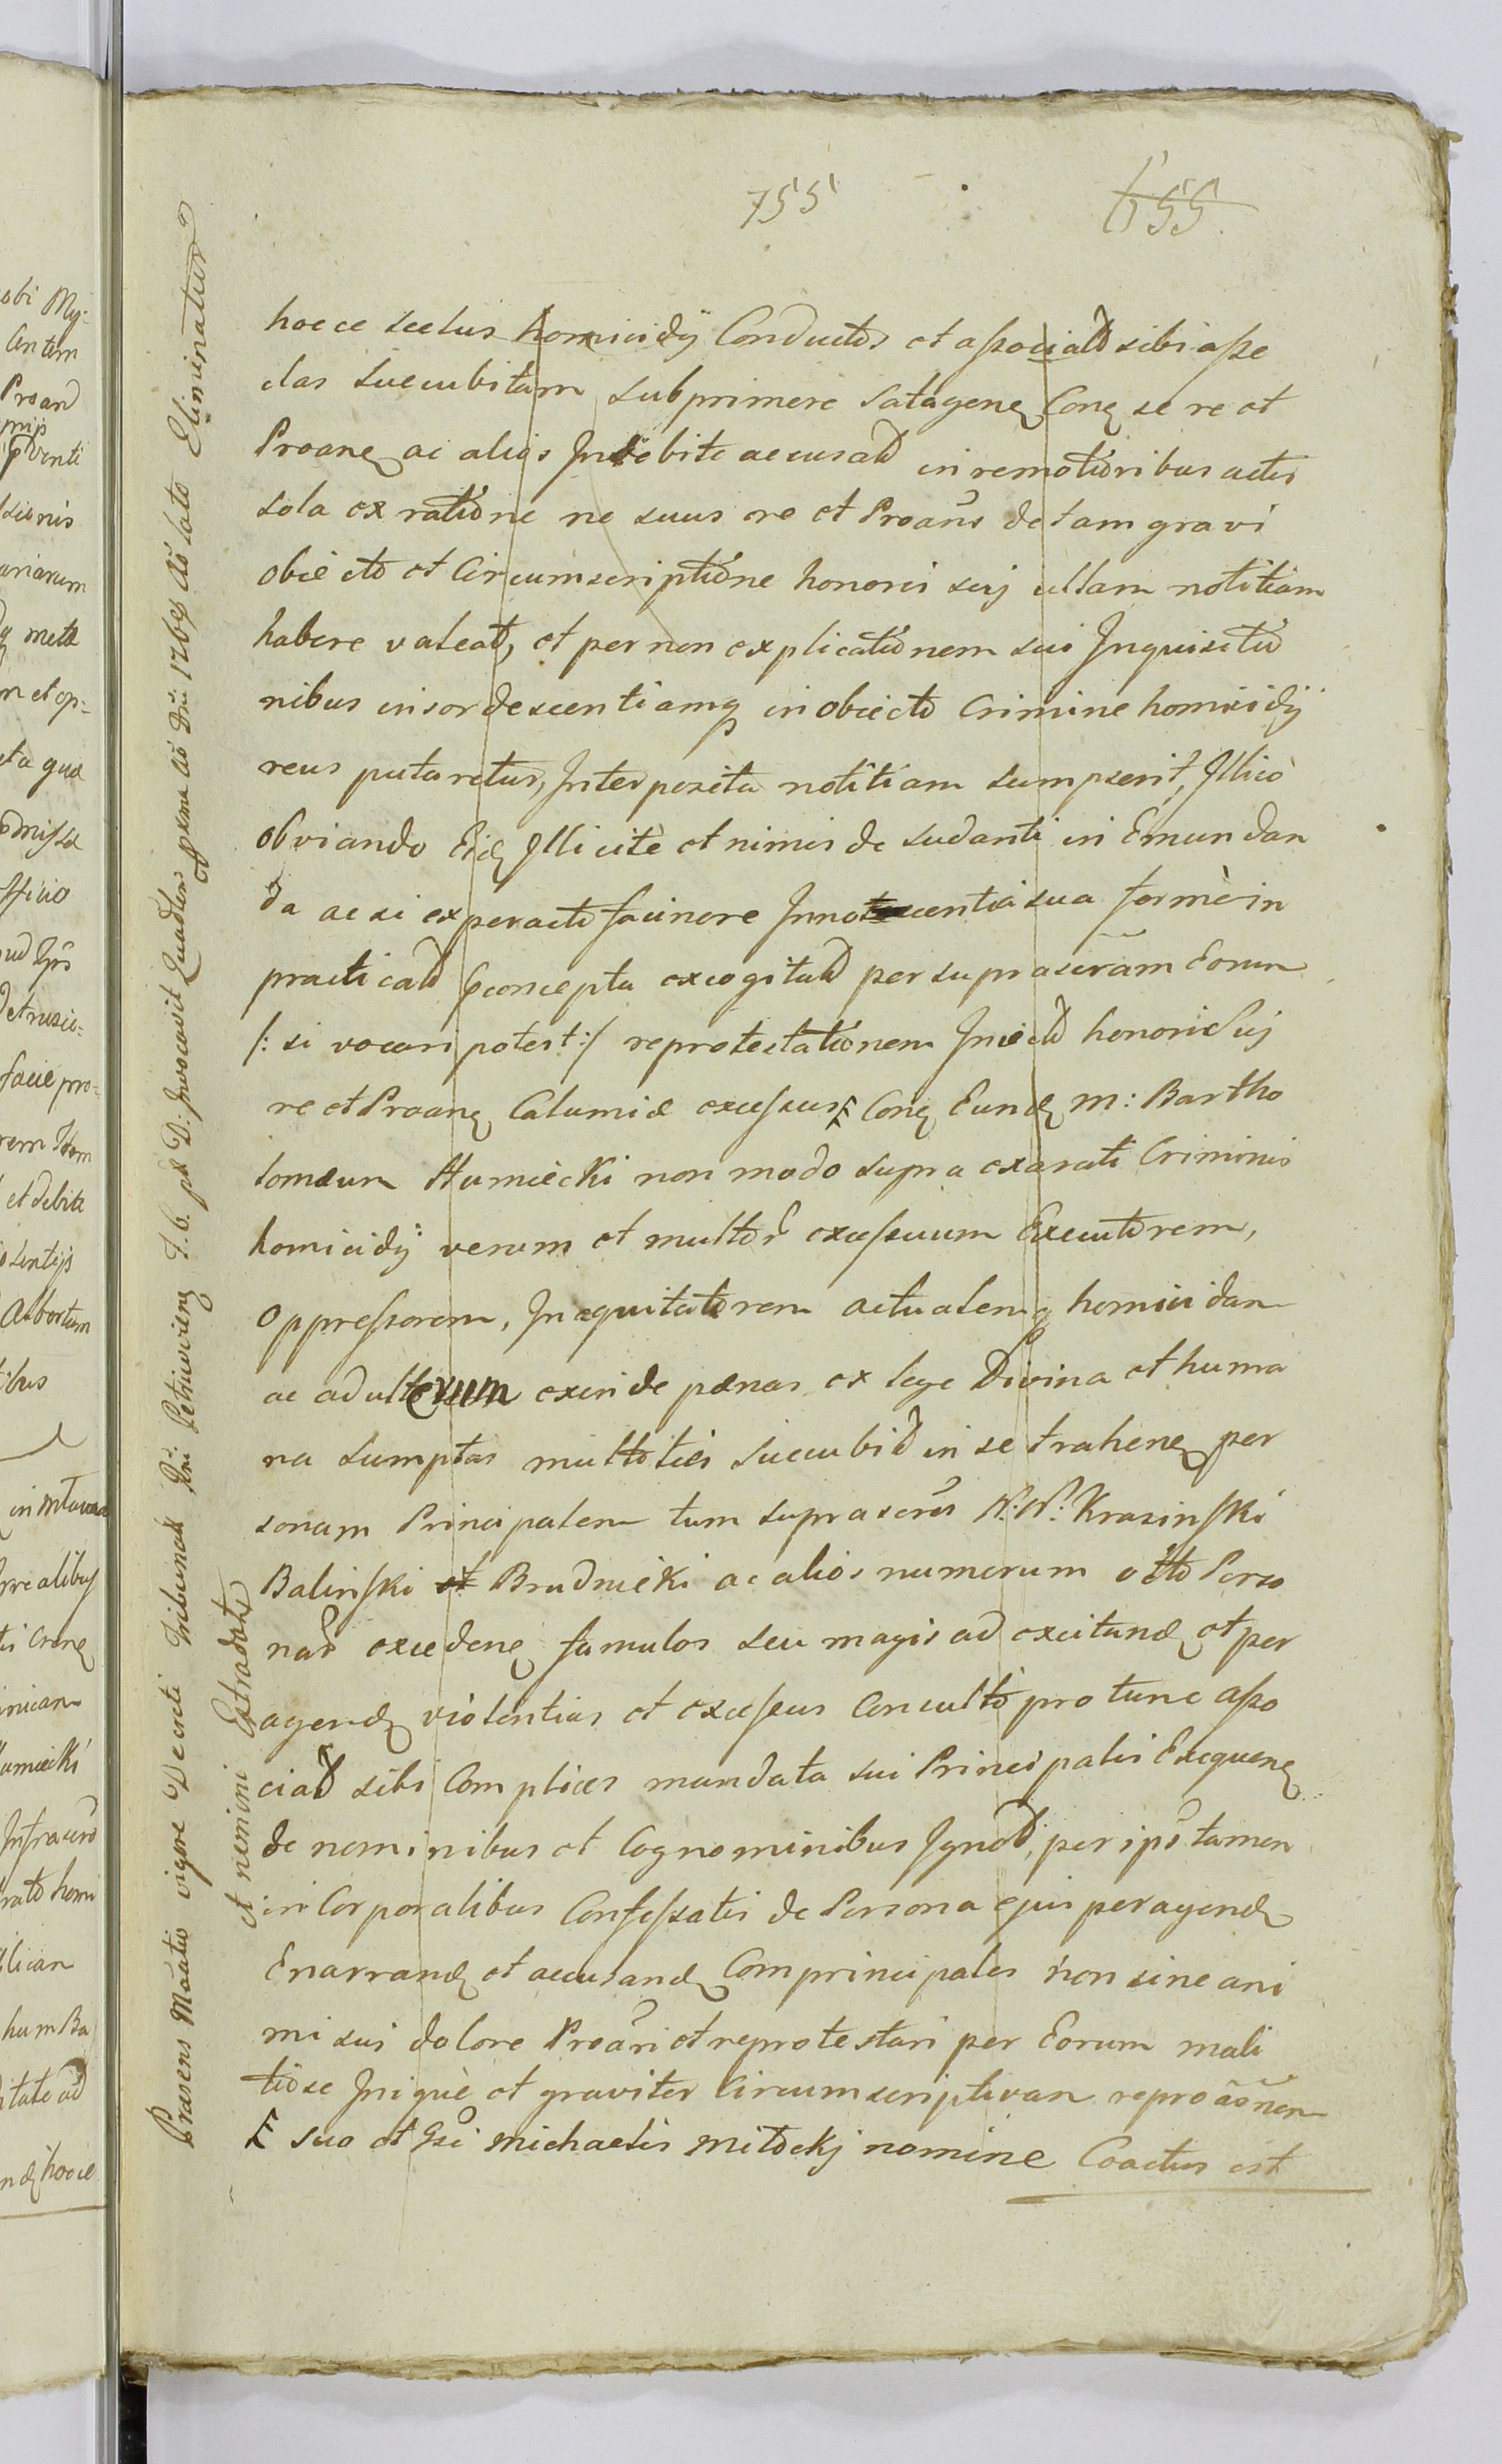 755 655.
hocce scelus homicidij Conductos et associatd sibi asse
clas succubitam subprimere satagene Cone se re et
Proane ac alios Indebite accusatd in remotioribus actis
sola ex ratione ne suus re et Proans de tam gravi
obiecto et Circumscriptione honoris suj ullam notitiam
habere valeat, et per non explicationem sui Inquisitio
nibus insordescentiamq in obiecto Crimine homicidij
reus putaretur, Interposita notitiam sumpserit, Illico
obviando Illicite et nimis de sudanti in Emundan
da ac si ex peracto facinore sua forme in
practicatd concepta excogitatd per suprascram Eorum
/: si vocari potest :/ reprotestationem Iniectd honori Suj
re et Proane Calumiæ excessus Cone Eund M: Bartho
lomæum Humiecki non modo supra exarati Criminis
homicidij verum et multor excessuum Executorem,
Oppressorem, Inequitatorem actualemq homicidam
ac adulterum exinde pænas ex lege Divina et huma
na sumptas multoties succubitd in se trahene per
sonam Principalem tum suprascrs N: N: Krasinski
Balinski et Brudnicki ac alios numerum octo Perso
nard excedene famulos seu magis ad excitand et per
agend violentias et excessus Consulto pro tunc asso
ciatd sibi Complices mandata sui Principalis Exequene
de nominibus et Cognominibus Ignotd, per ips tamen
in Corporalibus Confessatis de Persona ejus peragend
Enarrand et accusand Comprincipales non sine ani
mi sui dolore Proari et reprotestari per Eorum mali
tiose Inique et graviter Circumscriptivam reproaonem
suo et Gsi Michaelis Mitockj nomine Coactus est
Præsens Mautio vigore Decreti Tribunal Rni Petricovien f. 6. D: Invocavit Quadlur prma Ao Dni 1769 Ao lato Eliminatur
et nemini Extradatr
obi My:
Cantem
Proand
venti
ssionis
uariarum
mett
m et op=
ta qua
omissa
fficio
Detrusio=
facie pro=
rem Idem
et debite
Abortum
ibus
realibus
inican
umiecki
Infrascro
rato homi
lican
hum Ba
itate ad
hocce